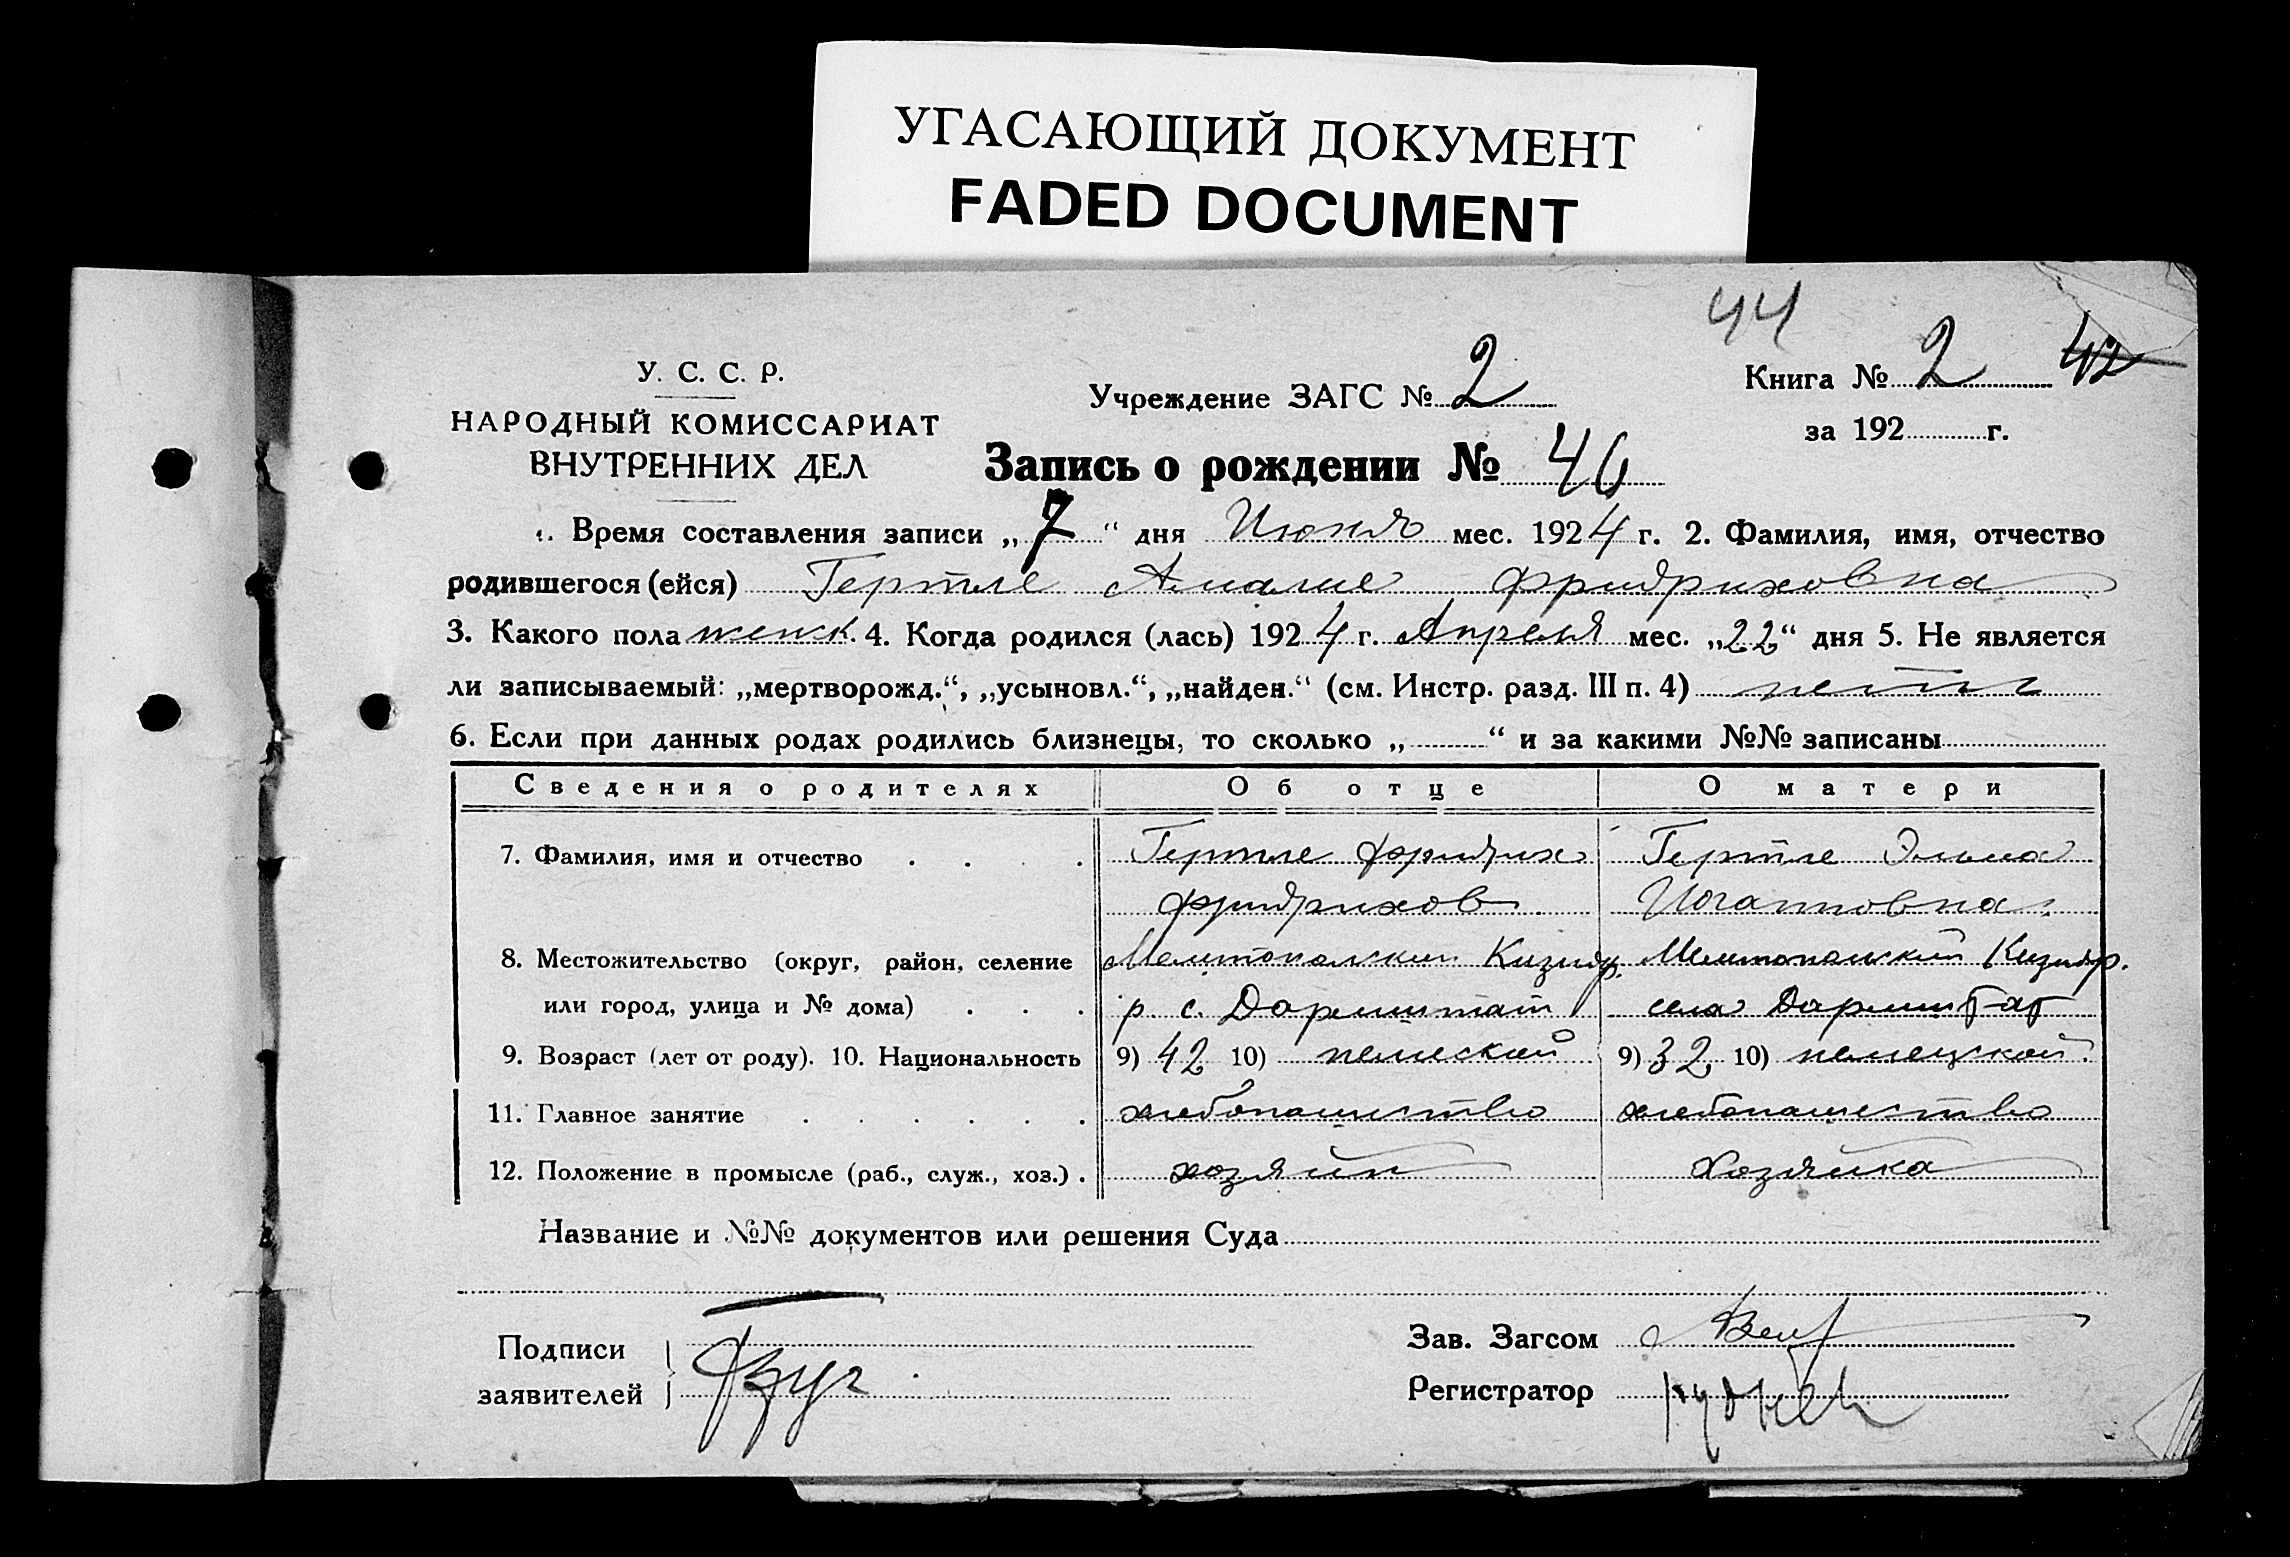 УГАСАЮЩИЙ ДОКУМЕНТ
FADED DOCUMENT
44
У. С. С. Р.
НАРОДНЫЙ КОМИССАРИАТ
ВНУТРЕННИХ ДЕЛ
Учреждение ЗАГС № 2
Книга № 2 42
за 192 г.
Запись о рождении № 46
1. Время составления записи „7“ дня Июня мес. 1924 г. 2. Фамилия, имя, отчество
родившегося (ейся) Гертле Амалие Фридриховна
3. Какого пола женск. 4. Когда родился (лась) 1924 г. Апреля мес. „22“ дня 5. Не является
ли записываемый: „мертворожд.“, „усыновл.“, „найден.“ (см. Инстр. разд. III п. 4)
6. Если при данных родах родились близнецы, то сколько „ “ и за какими №№ записаны
Сведения о родителях Об отце О матери
7. Фамилия, имя и отчество Гертле Фридрих Гертле
Фридрихов Иогановна
8. Местожительство (округ, район, селение Мелитопольский Кизияр. Мелитопольский Кизияр.
или город, улица и № дома) р. с. Дармштат села Дармштат
9. Возраст (лет от роду). 10. Национальность 9) 42 10) немеский 9) 32 10) немецкой
11. Главное занятие хлебопашество хлебопашество
12. Положение в промысле (раб., служ., хоз.) хозяин Хозяйка
Название и №№ документов или решения Суда
Подписи
заявителей
Зав. Загсом
Регистратор